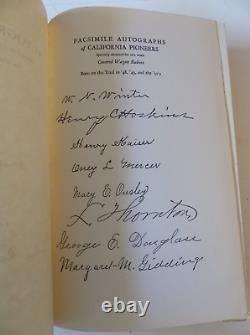 FACSIMILE AUTOGRAPHS
of CALIFORNIA PIONEERS
Specially obtained for this work
Covered Wagon Babies
Born on the Trail in '48, '49, and the 50's
W. N. Winter
Henry C Hoskins
Henry Kaiser
Oney L. Mercer
Mary E. Ousley
L Thornton
George E. Douglass
Margaret-M. Gidding
ebay